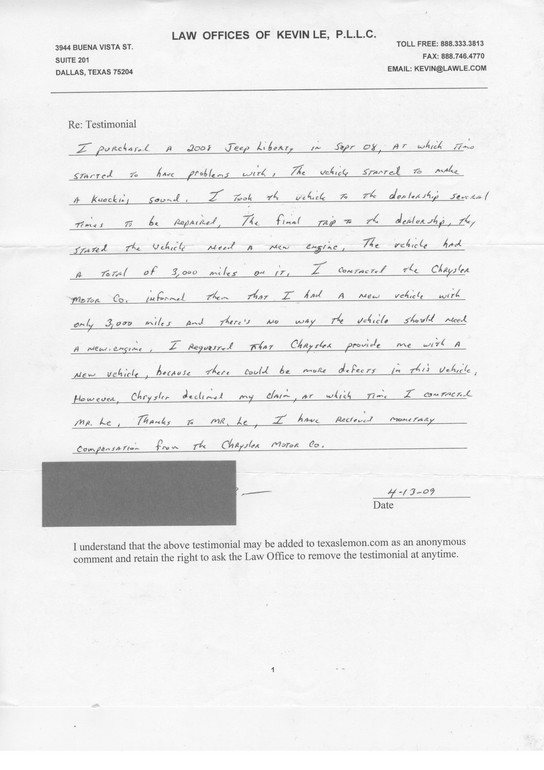 LAW OFFICES OF KEVIN LE, P.L.L.C.
3944 BUENA VISTA ST.
SUITE 201
DALLAS, TEXAS 75204
TOLL FREE: 888.333.3813
FAX: 888.746.4770
EMAIL: KEVIN@LAWLE.COM
Re: Testimonial
I purchased A 2008 Jeep Liberty in Sept 08, At which time
started to have problems with, The vehicle started to make
A Knocking sound. I Took th vehicle to the dealership several
Times to be repaired, The final trip to th dealership, they
stated the vehicle need A new engine. The vehicle had
A total of 3,000 miles on it. I contacted the Chrysler
Motor Co. informed them that I had A new vehicle with
only 3,000 miles and there's no way the vehicle should need
A new engine. I requested that Chrysler provide me with A
new vehicle, because there could be more defects in this vehicle,
However, Chrysler declined my claim, at which time I contacted
Mr. Le, Thanks to Mr. Le, I have recieved monetary
compensation from the Chrysler Motor Co.
4-13-09
Date
I understand that the above testimonial may be added to texaslemon.com as an anonymous
comment and retain the right to ask the Law Office to remove the testimonial at anytime.
1